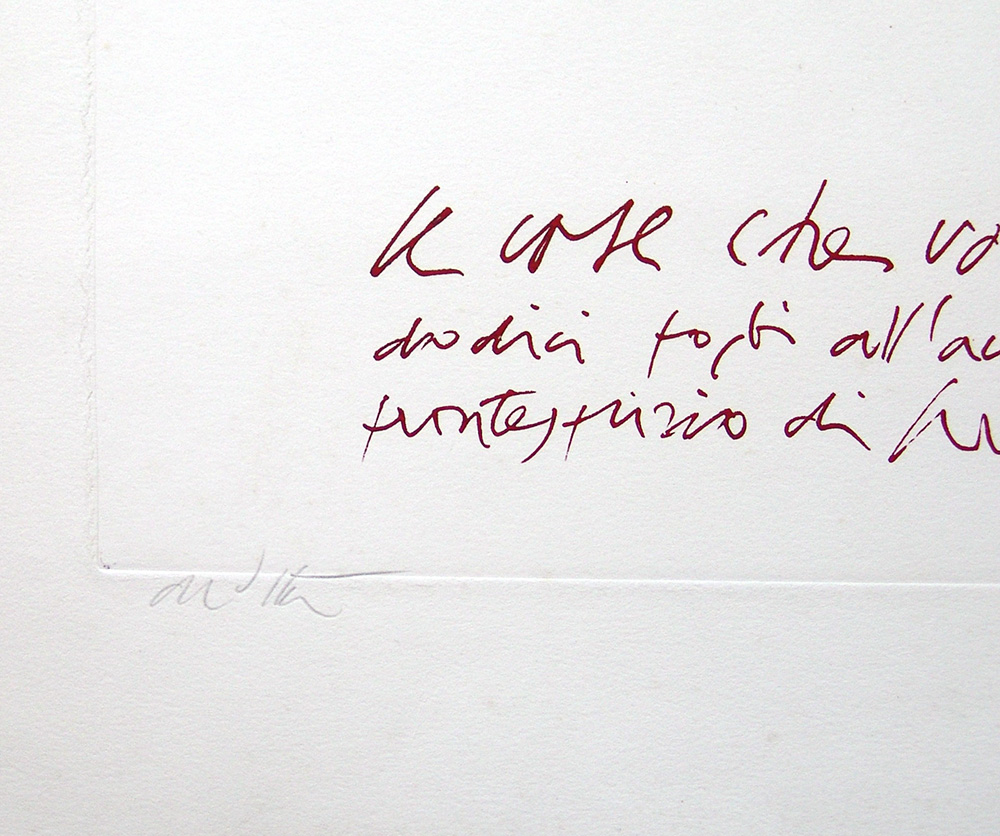 le cose che vo
dodici fogli all'ac
frontespizio di